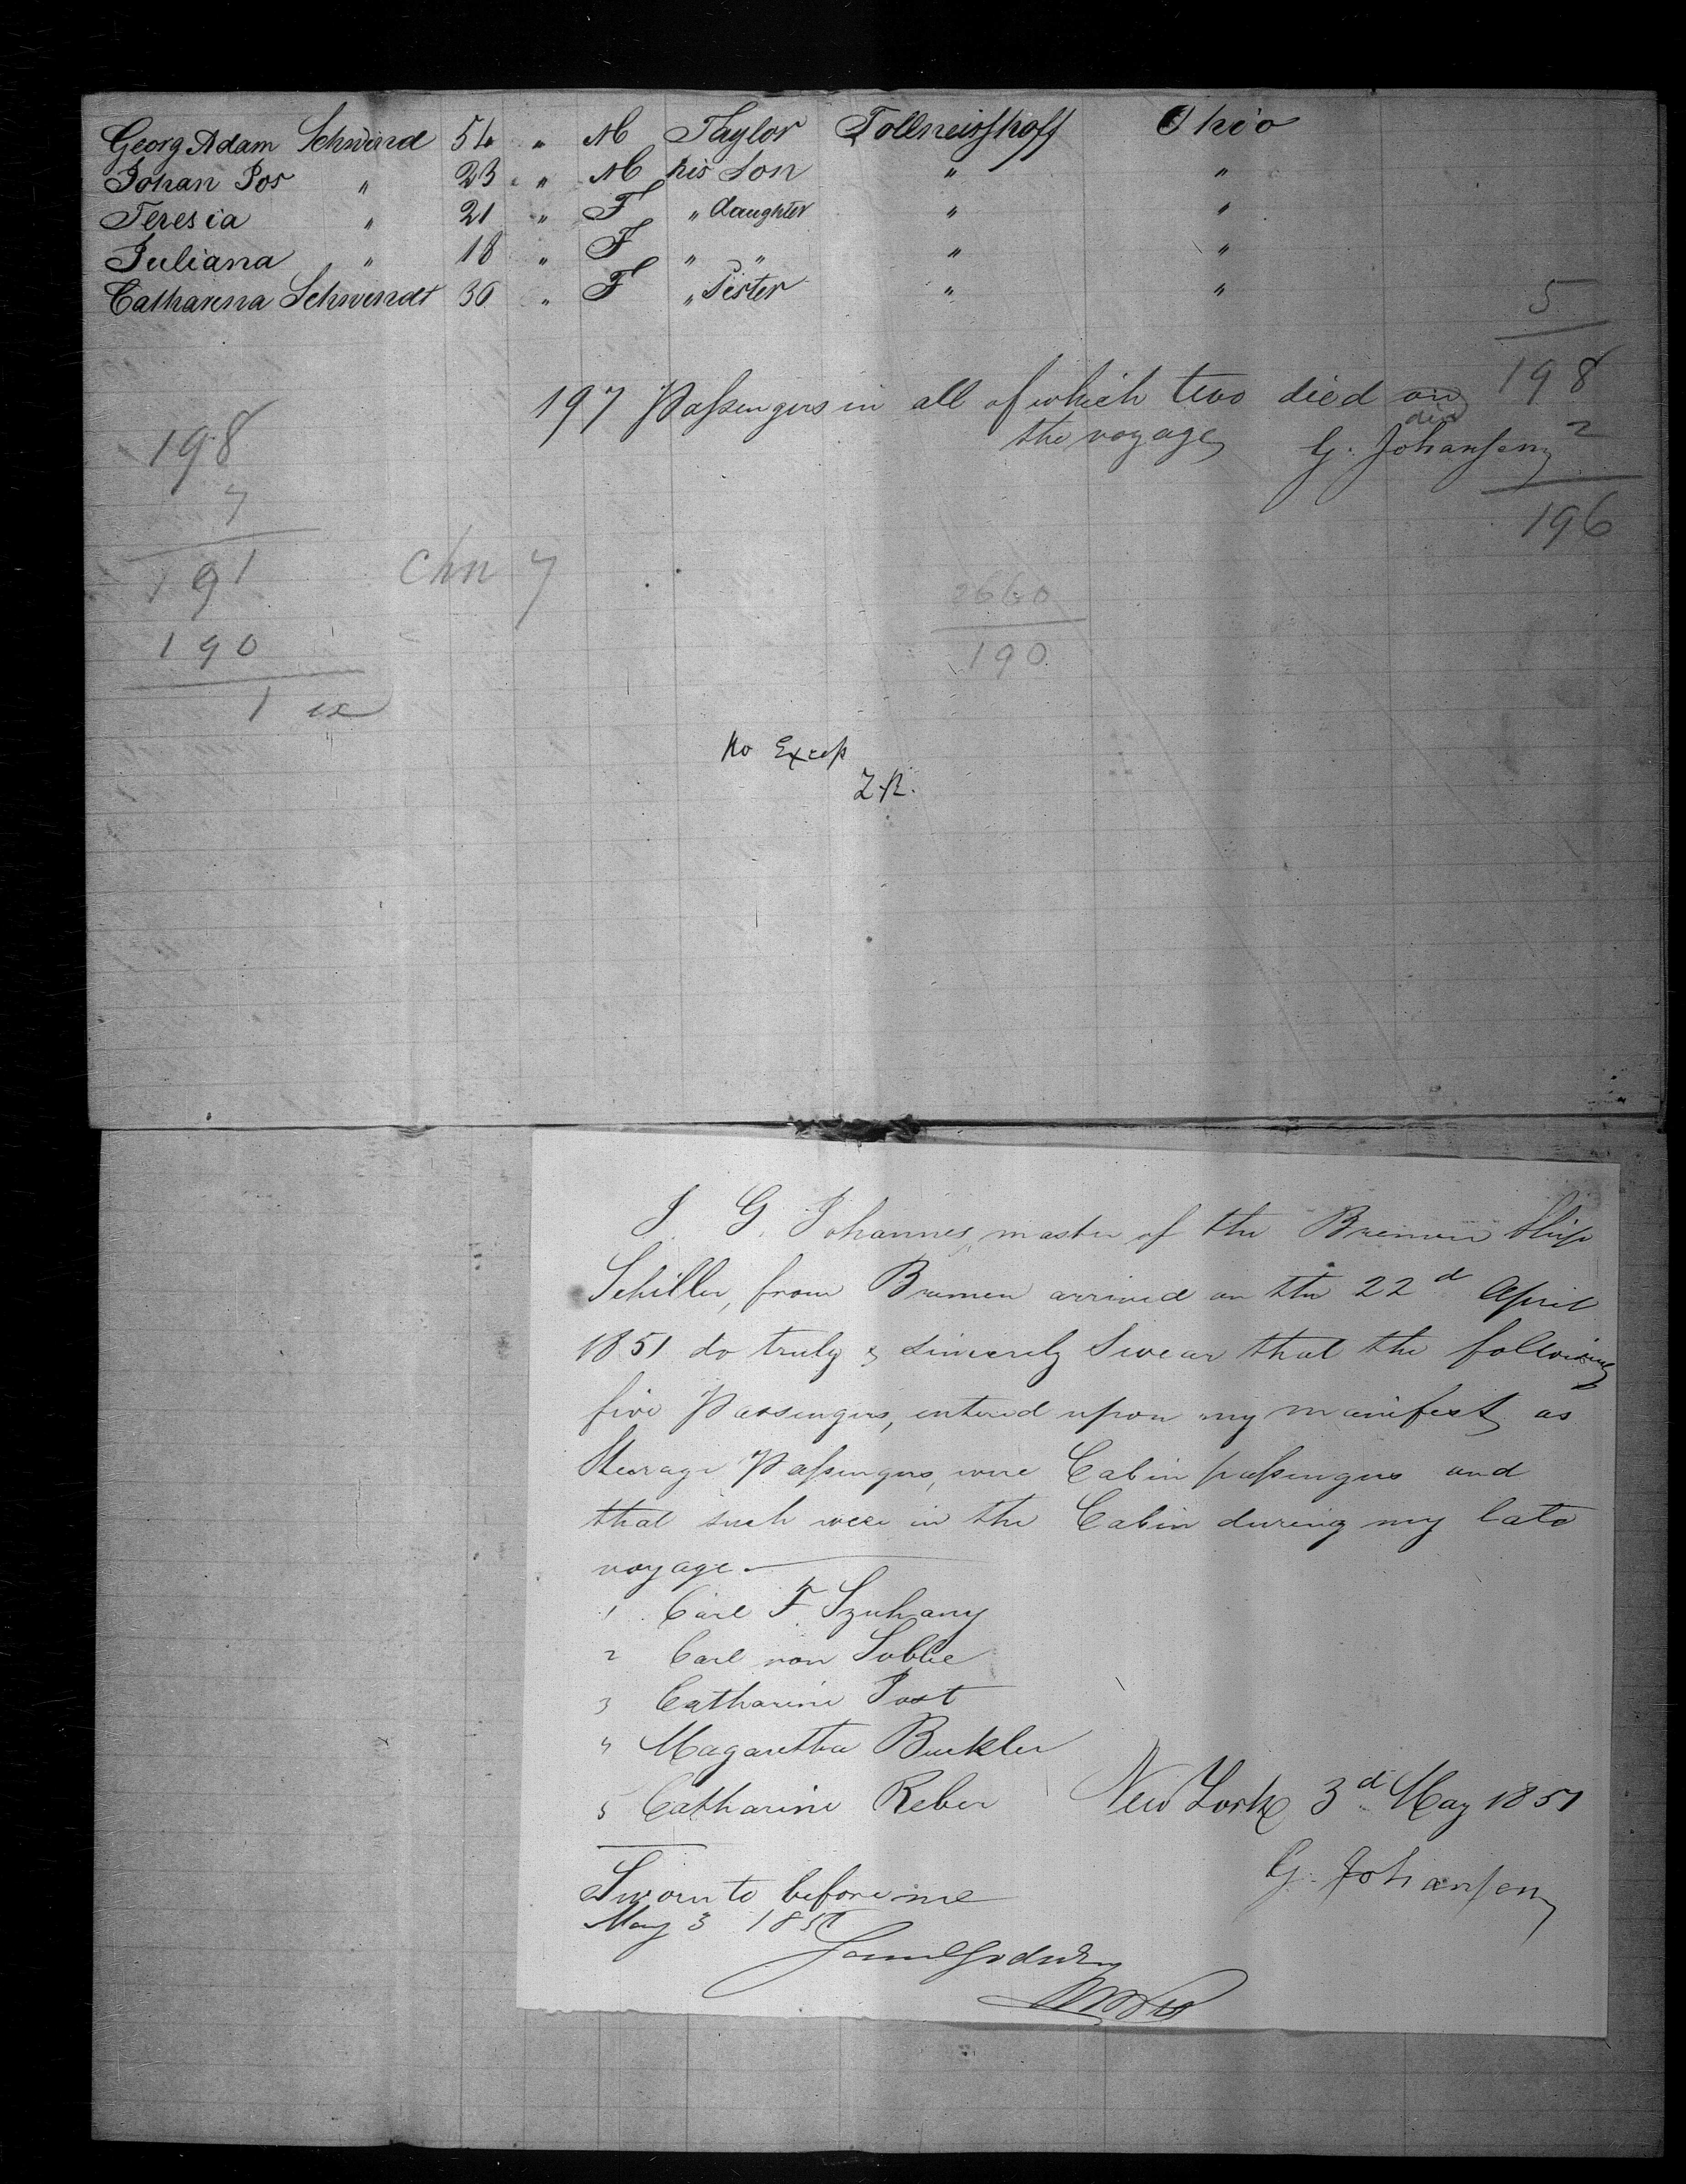 Georg Adam Schwind 54 " M Taylor Tollneishoff Ohio
Johan Jos " 23 " M his Son " "
Teresia " 21 " F " daughter " "
Juliana " 18 " F " " " "
Catharina Schwendt 36 " F " Sister " "
5
198
197 Passengers in all of which two died on
the voyage G. Johansen
died 2
196
198
7
191
190
1 ex
Chn 7
2660
190
No Excep
I, G. Johannes, master of the Bremen Ship
Schiller, from Bremen arrived on the 22d April
1851 do truly & sincerely Swear that the following
five Passengers, entered upon my manifest as
Steerage Passengers, were Cabin passengers and
that such were in the Cabin during my late
voyage.
1 Carl F Szuhany
2 Carl von Soblie
3 Catharine Jost
4 Magaretha Buckler
5 Catharine Reber New York 3d May 1851
G. Johansen
Sworn to before me
May 3 1851